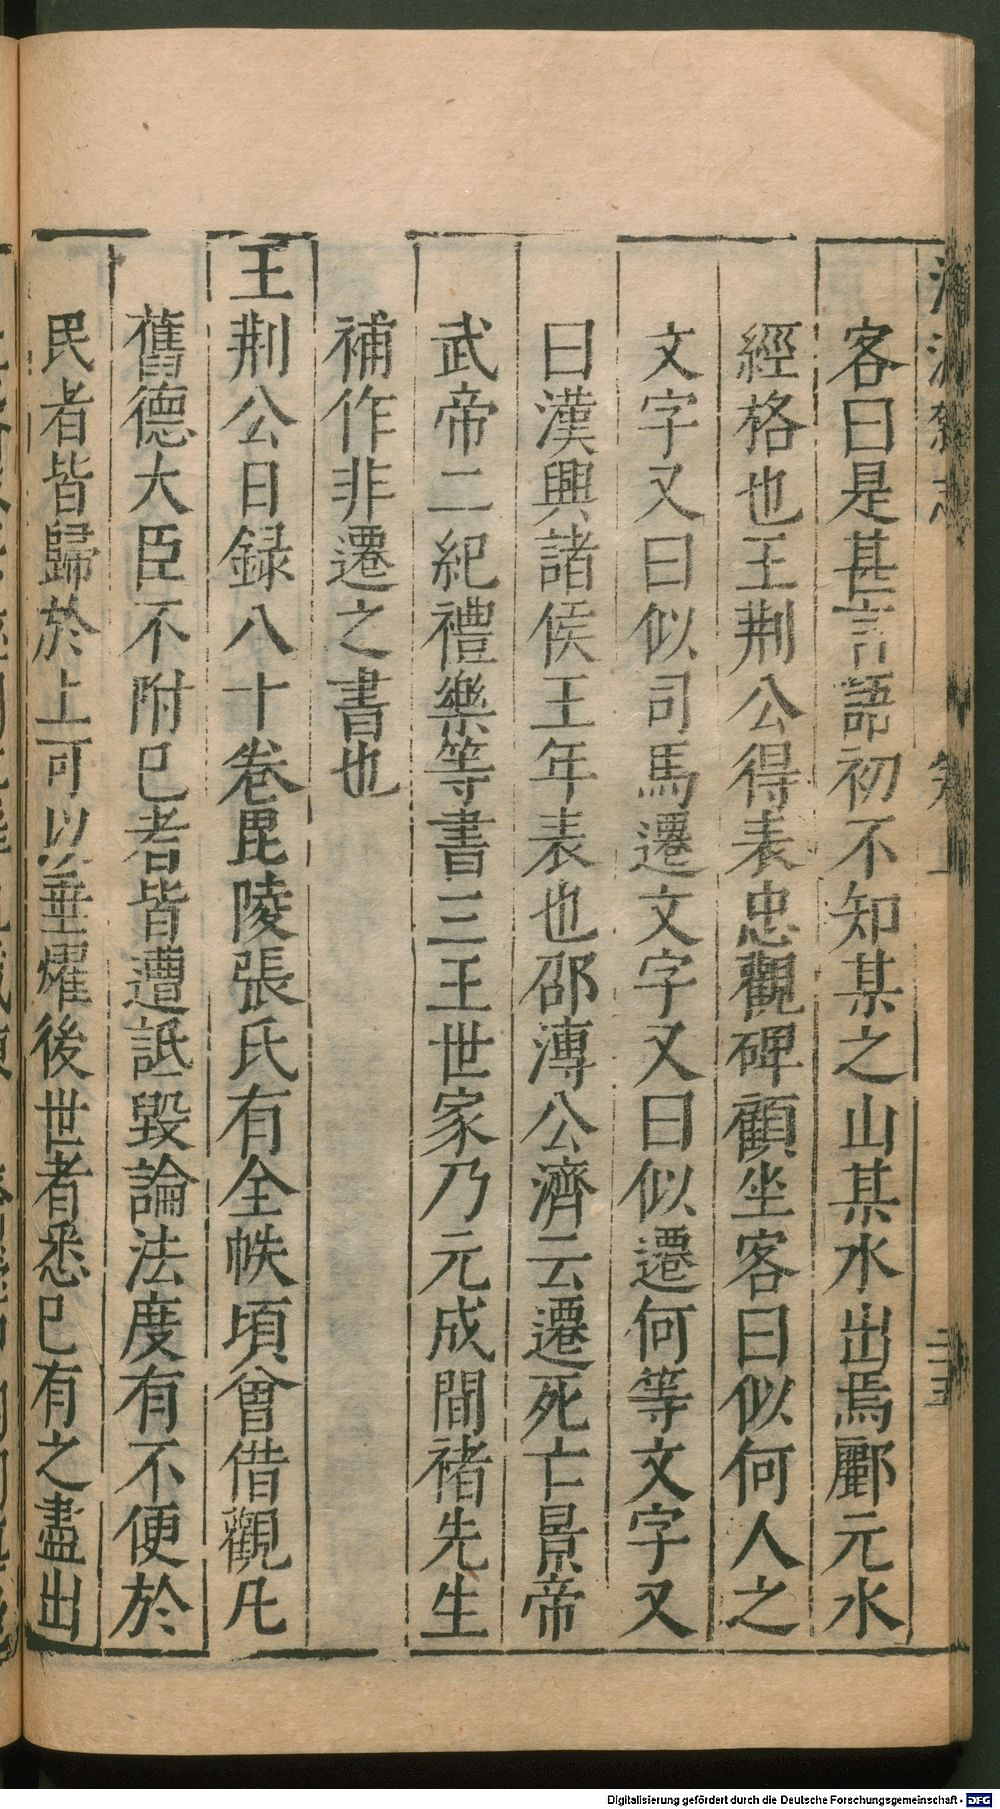 客曰是甚言語初不知某之山某水出焉酈元水
經格也王荆公得表忠觀碑顧坐客曰似何人之
文字又曰似司馬遷文字又曰似遷何等文字又
曰漢興諸侯王年表也邵溥公濟云遷死亡景帝
武帝二紀禮樂等書三王世家乃元成間褚先生
補作非遷之書也
王荆公日録八十卷毘陵張氏有全帙頃曾借觀凡
舊德大臣不附已者皆遭詆毀論法度有不便於
民者皆歸於上可以垂耀後世者悉已有之盡出
Digitalisierung gefördert durch die Deutsche Forschungsgemeinschaft - DFG